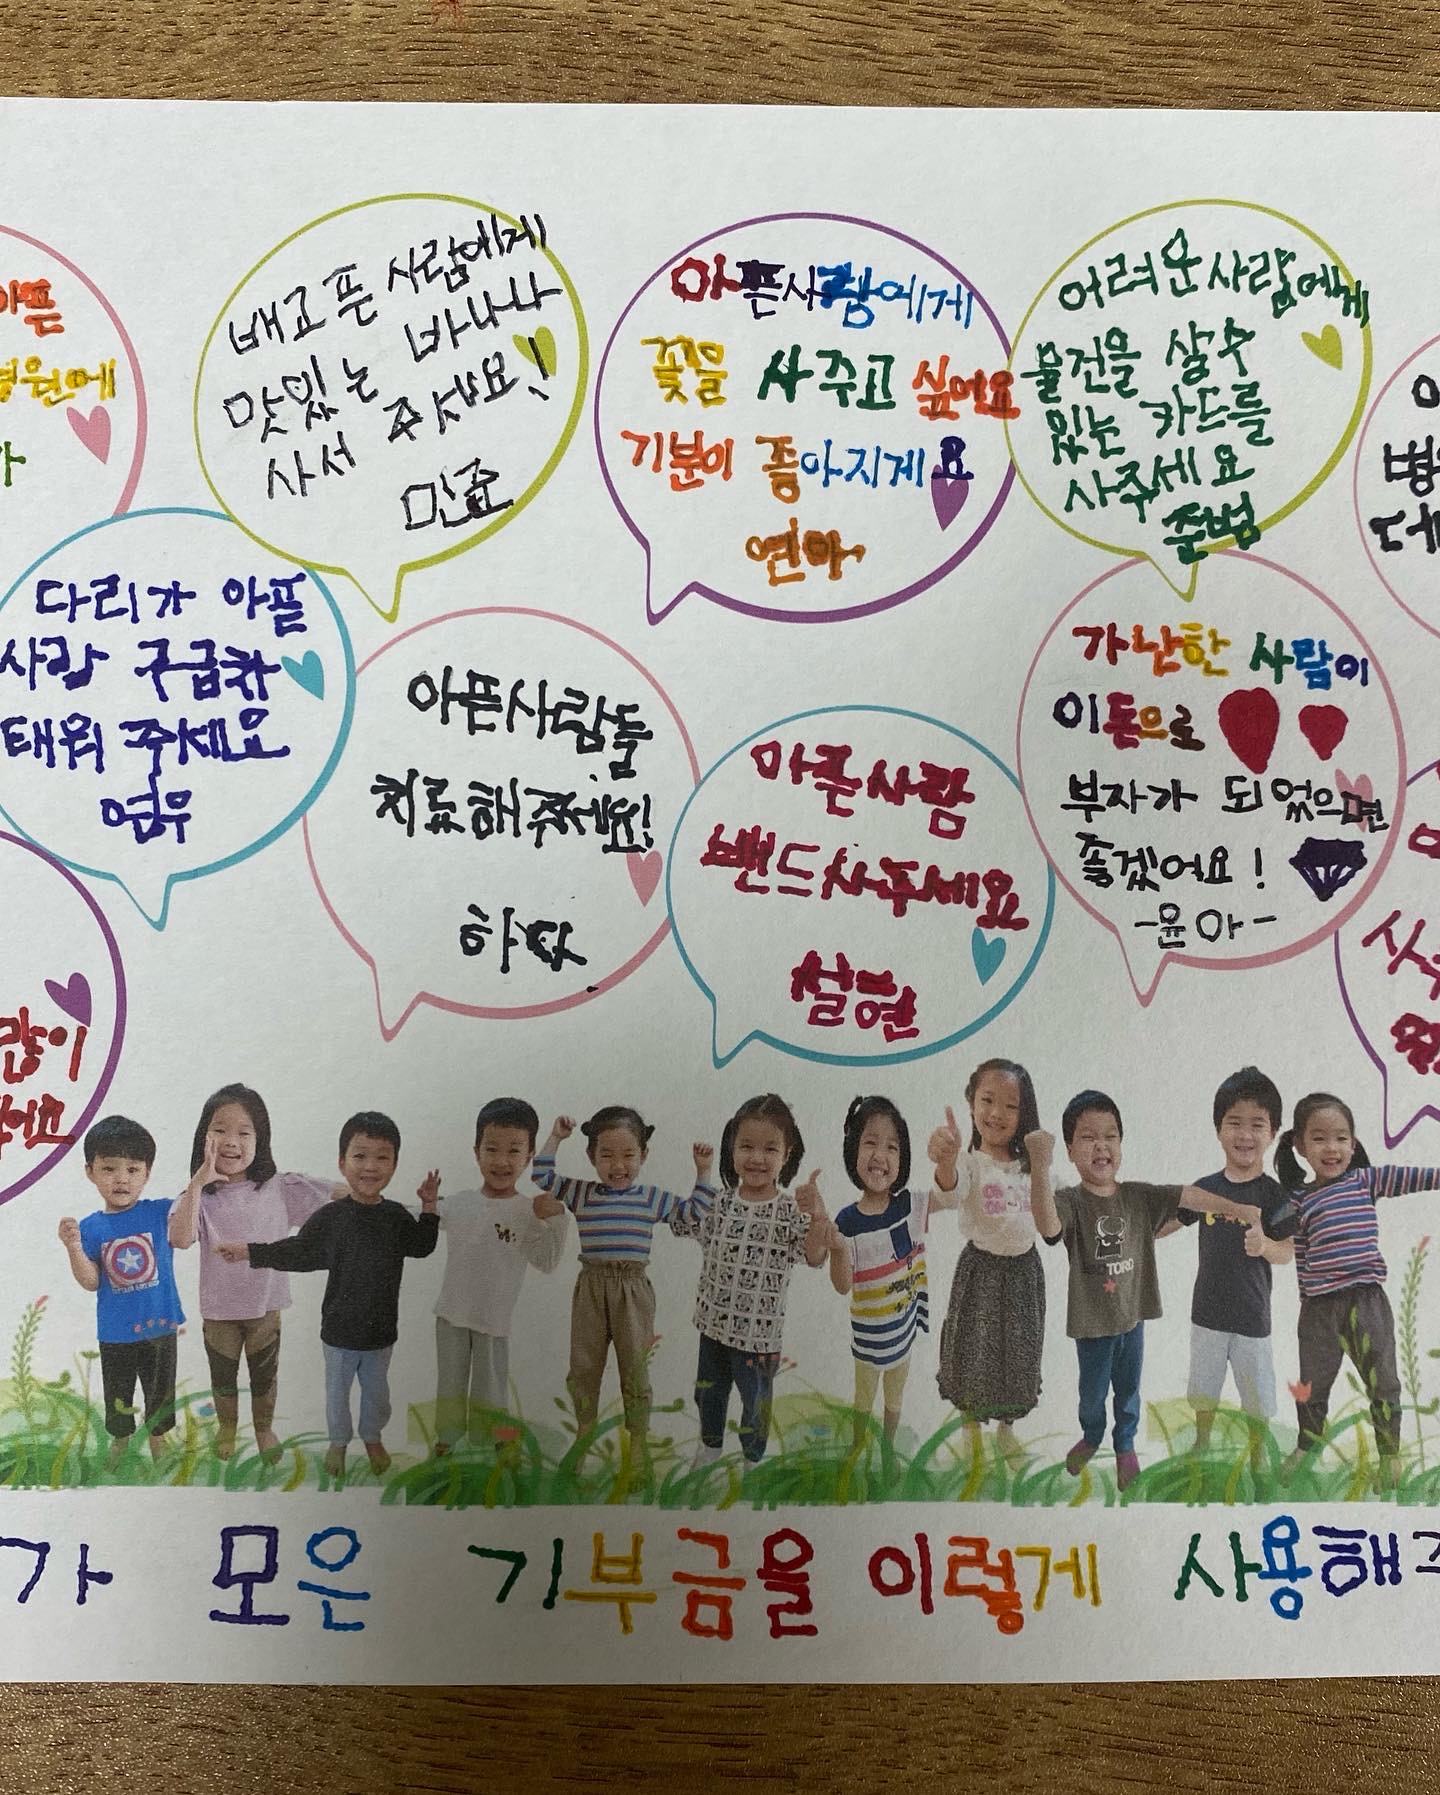 아픈
병원에
가
배고픈 사람에게
맛있는 바나나
사서 주세요!
민준
아픈사람에게
꽃을 사주고 싶어요
기분이 좋아지게요
연아
어려운사람에게
물건을 살수
있는 카드를
사주세요
준범
다리가 아픈
사람 구급차
태워 주세요
연우
아픈사람들
치료해주세요!
아픈사람
밴드사주세요
설현
가난한 사람이
이돈으로
부자가 되었으면
좋겠어요!
-윤아-
많이
TORO
가 모은 기부금을 이렇게 사용해주